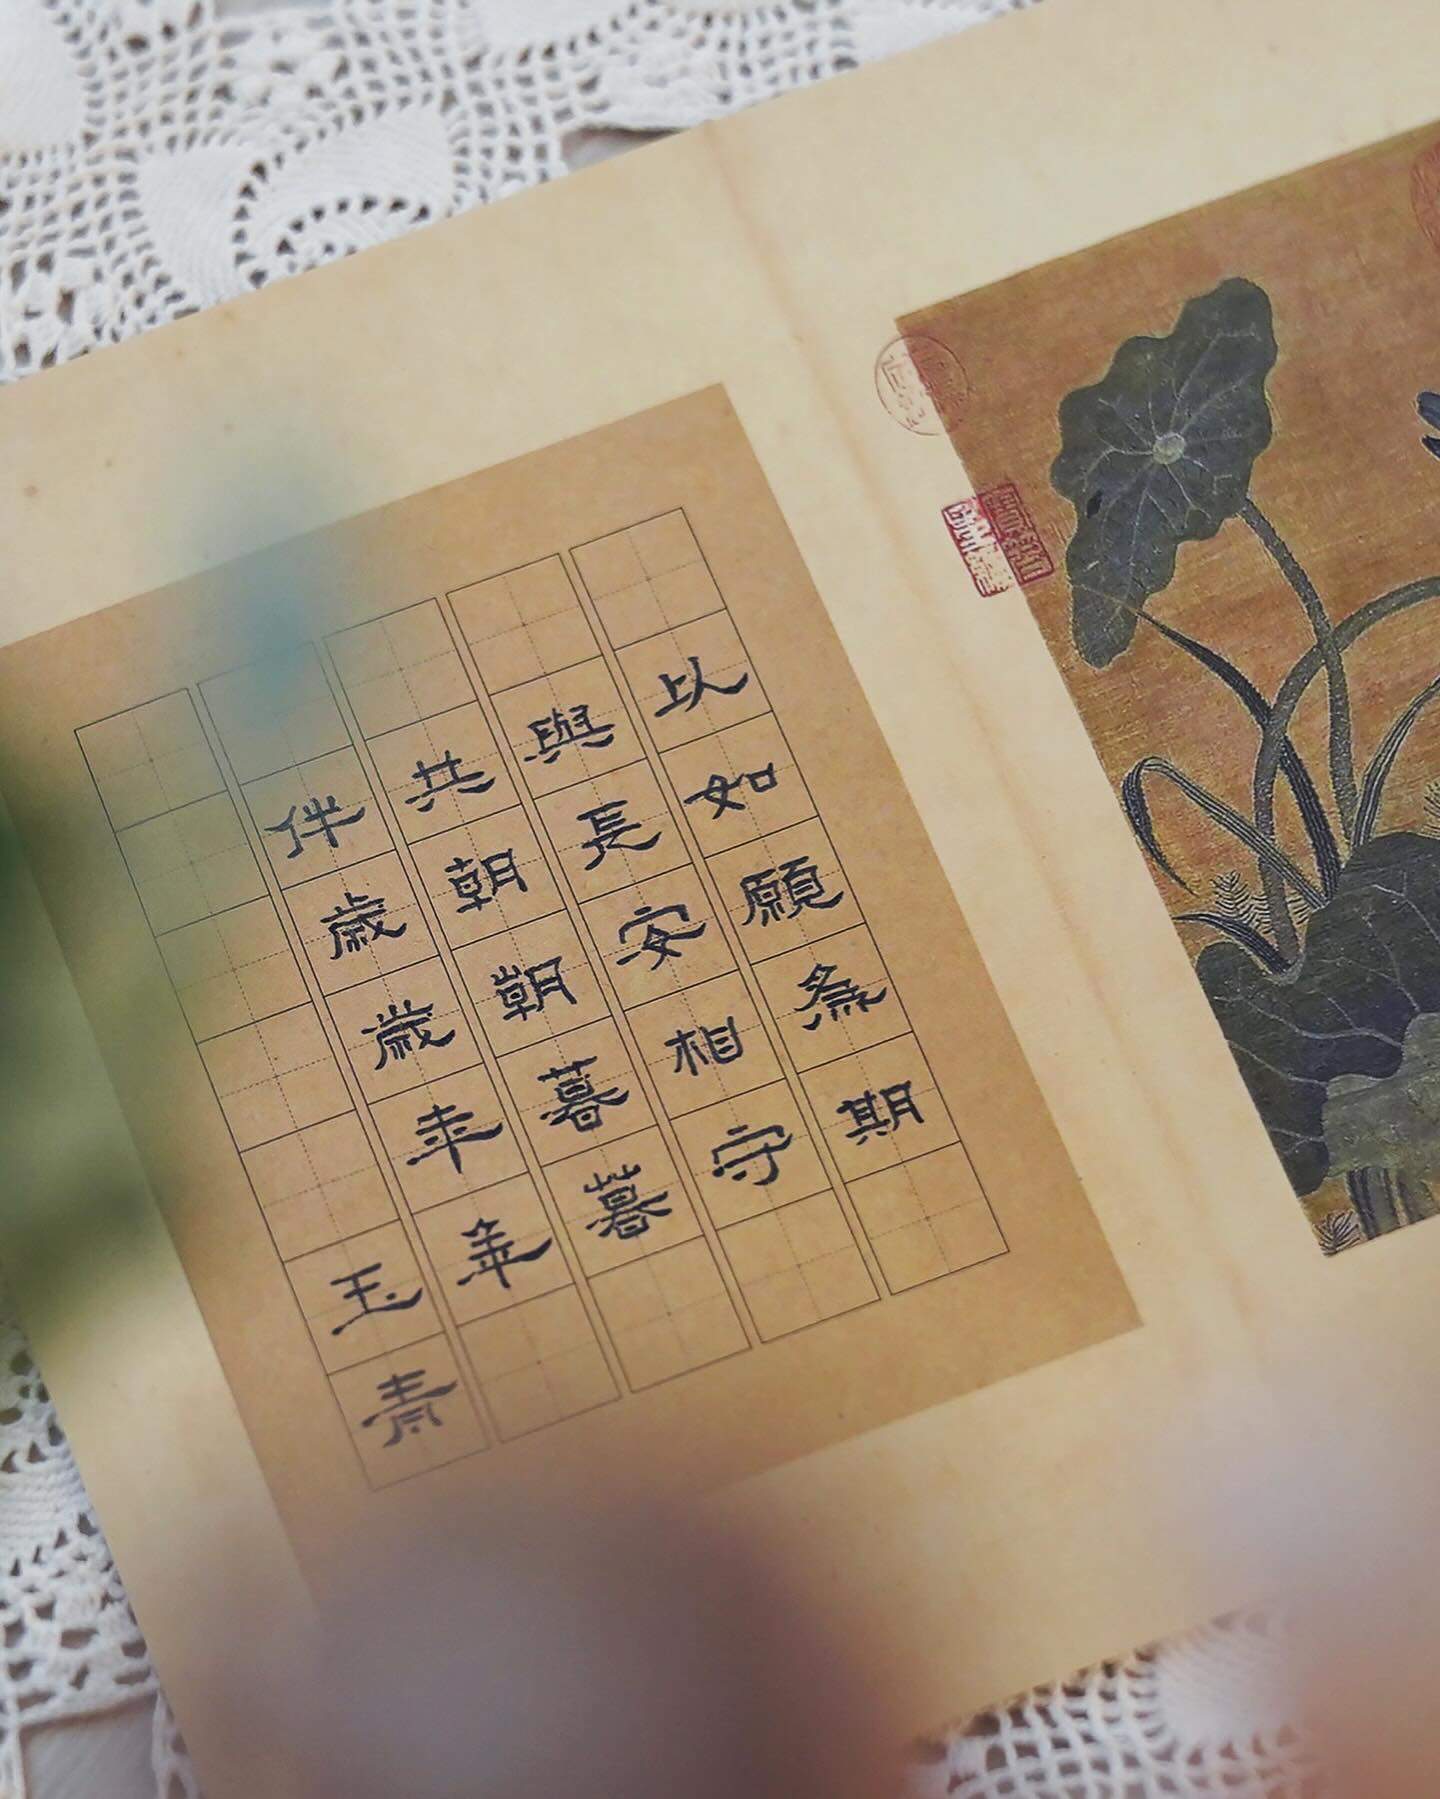 以如願為期
與長安相守
共朝朝暮暮
伴歲歲年年
玉青